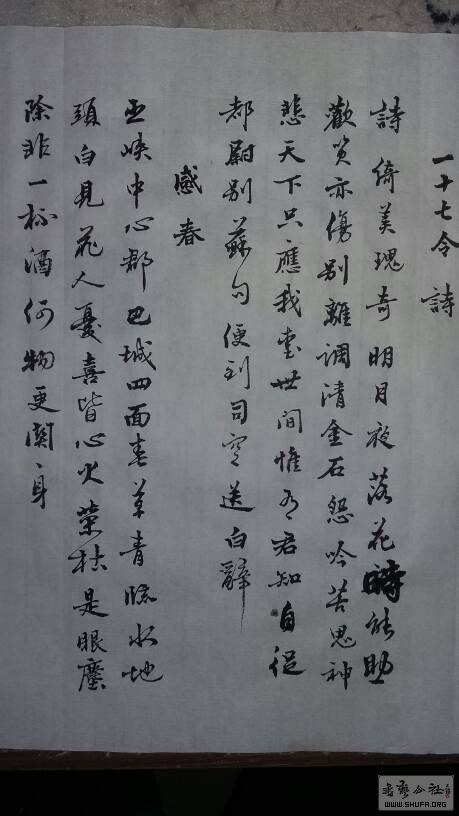 一十七令 詩
詩綺美瑰奇明月夜落花時能助
歡笑亦傷別離調清金石怨吟苦鬼神
悲天下只應我愛世間惟有君知自從
都尉別蘇句便到司空送白辭
感春
巫峽中心郡巴城四面春草青臨水地
頭白見花人憂喜皆心火榮枯是眼塵
除非一杯酒何物更關、身
書藝公社
WWW.SHUFA.ORG